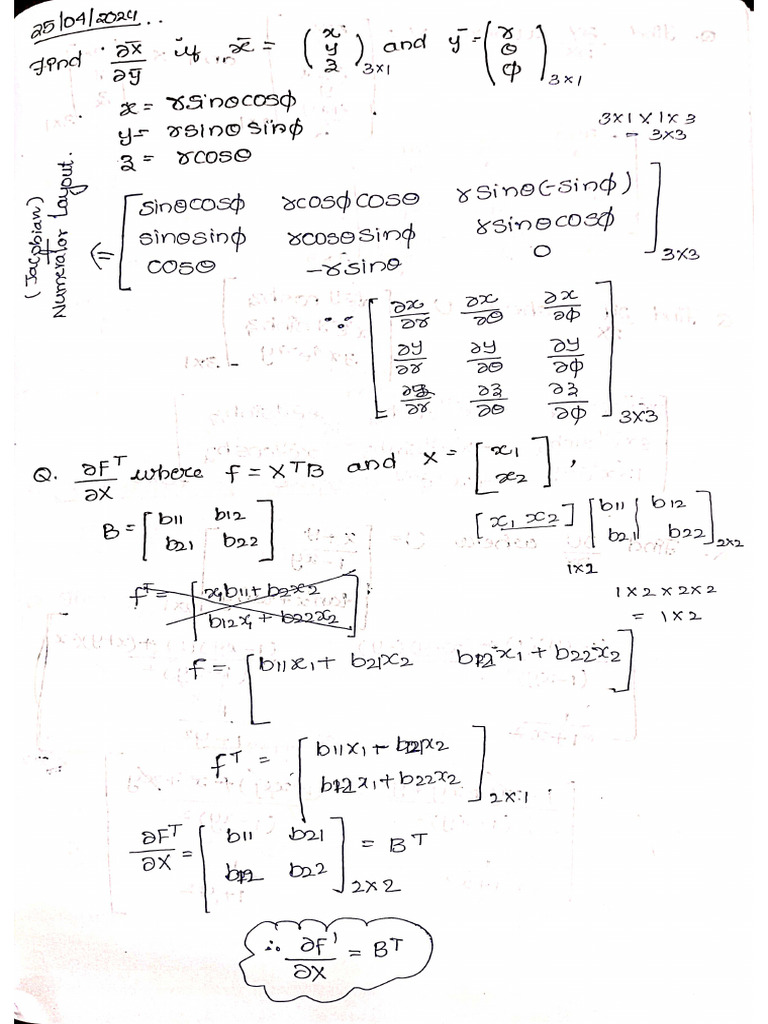 25/04/2024..
Find ∂x̄/∂ȳ if x̄ = (x y z)3×1 and ȳ = (r θ ϕ)3×1
x = rsinθcosϕ
y = rsinθ sinϕ
z = rcosθ
3×1×1×3
= 3×3
(Jacobian)
Numerator Layout.
⇐ [sinθcosϕ rcosϕcosθ rsinθ(-sinϕ)
sinθsinϕ rcosθsinϕ rsinθcosϕ
cosθ -rsinθ 0]3×3
∵ [∂x/∂r ∂x/∂θ ∂x/∂ϕ
∂y/∂r ∂y/∂θ ∂y/∂ϕ
∂z/∂r ∂z/∂θ ∂z/∂ϕ]3×3
Q. ∂F^T/∂X where f = X^TB and X = [x1 x2],
B = [b11 b12
b21 b22]
[x1 x2] [b11 b12
b21 b22]2×2
1×2
1×2×2×2
= 1×2
f^T = [x1b11 + b2x2
b12x1 + b22x2]
f = [b11x1 + b21x2 b12x1 + b22x2]
f^T = [b11x1 + b21x2
b12x1 + b22x2]2×1
∂F^T/∂X = [b11 b21
b12 b22]2×2 = B^T
∴ ∂F'/∂X = B^T